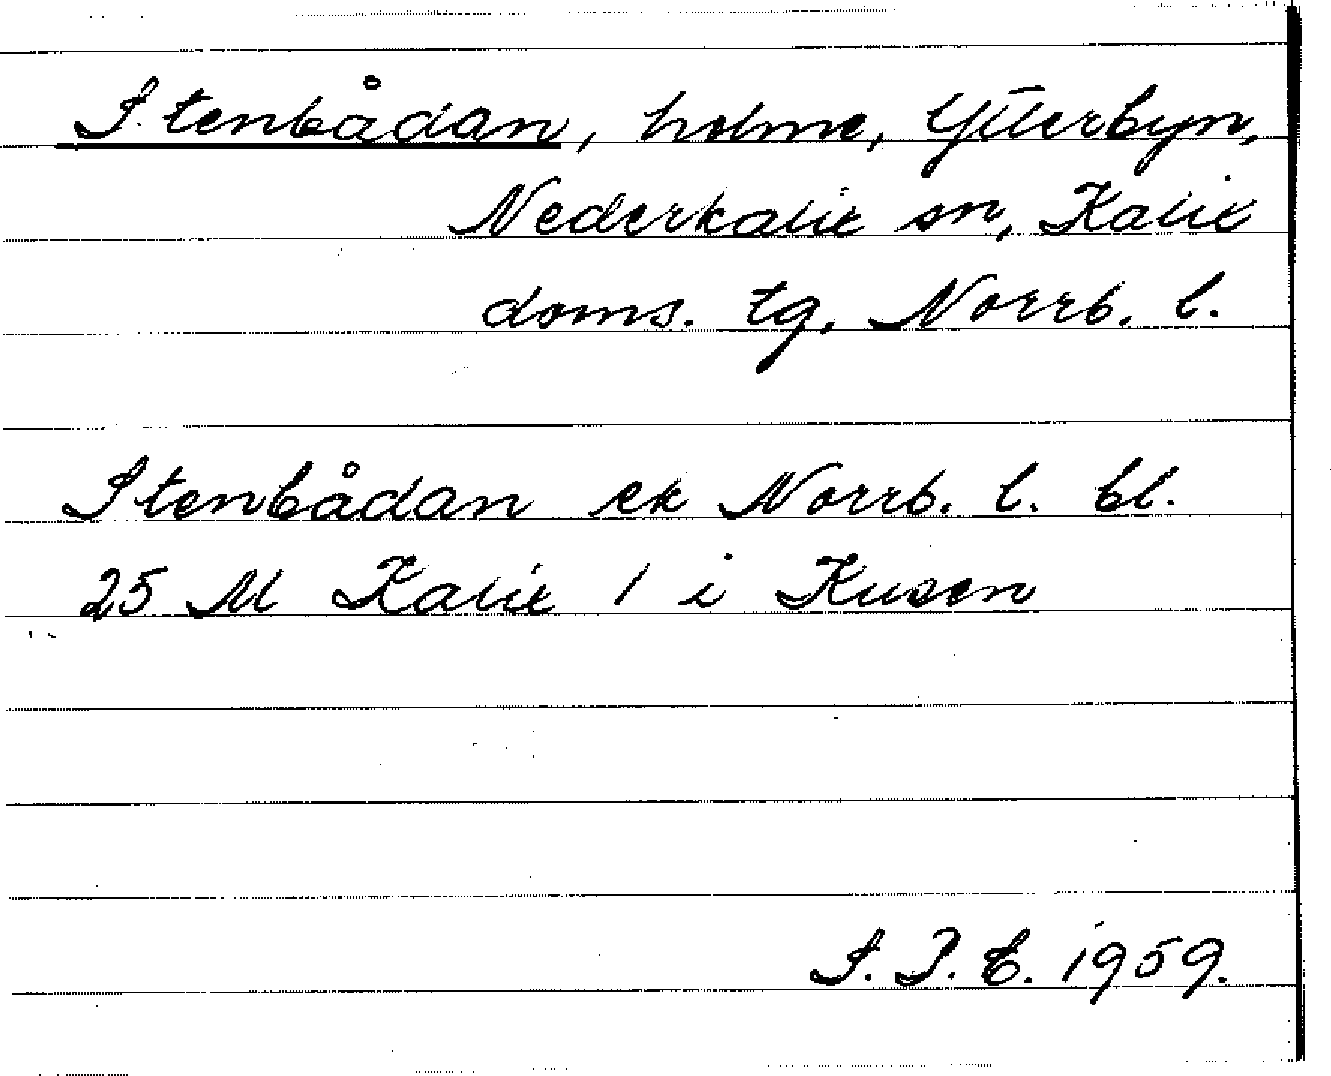 Stenbådan, holme, Ytterbyn,
Nederkalix sn, Kalix
doms. tg, Norrb. l.
Stenbådan ek Norrb. l. bl.
25 M Kalix 1 i Kusen
S. P. E. 1959.